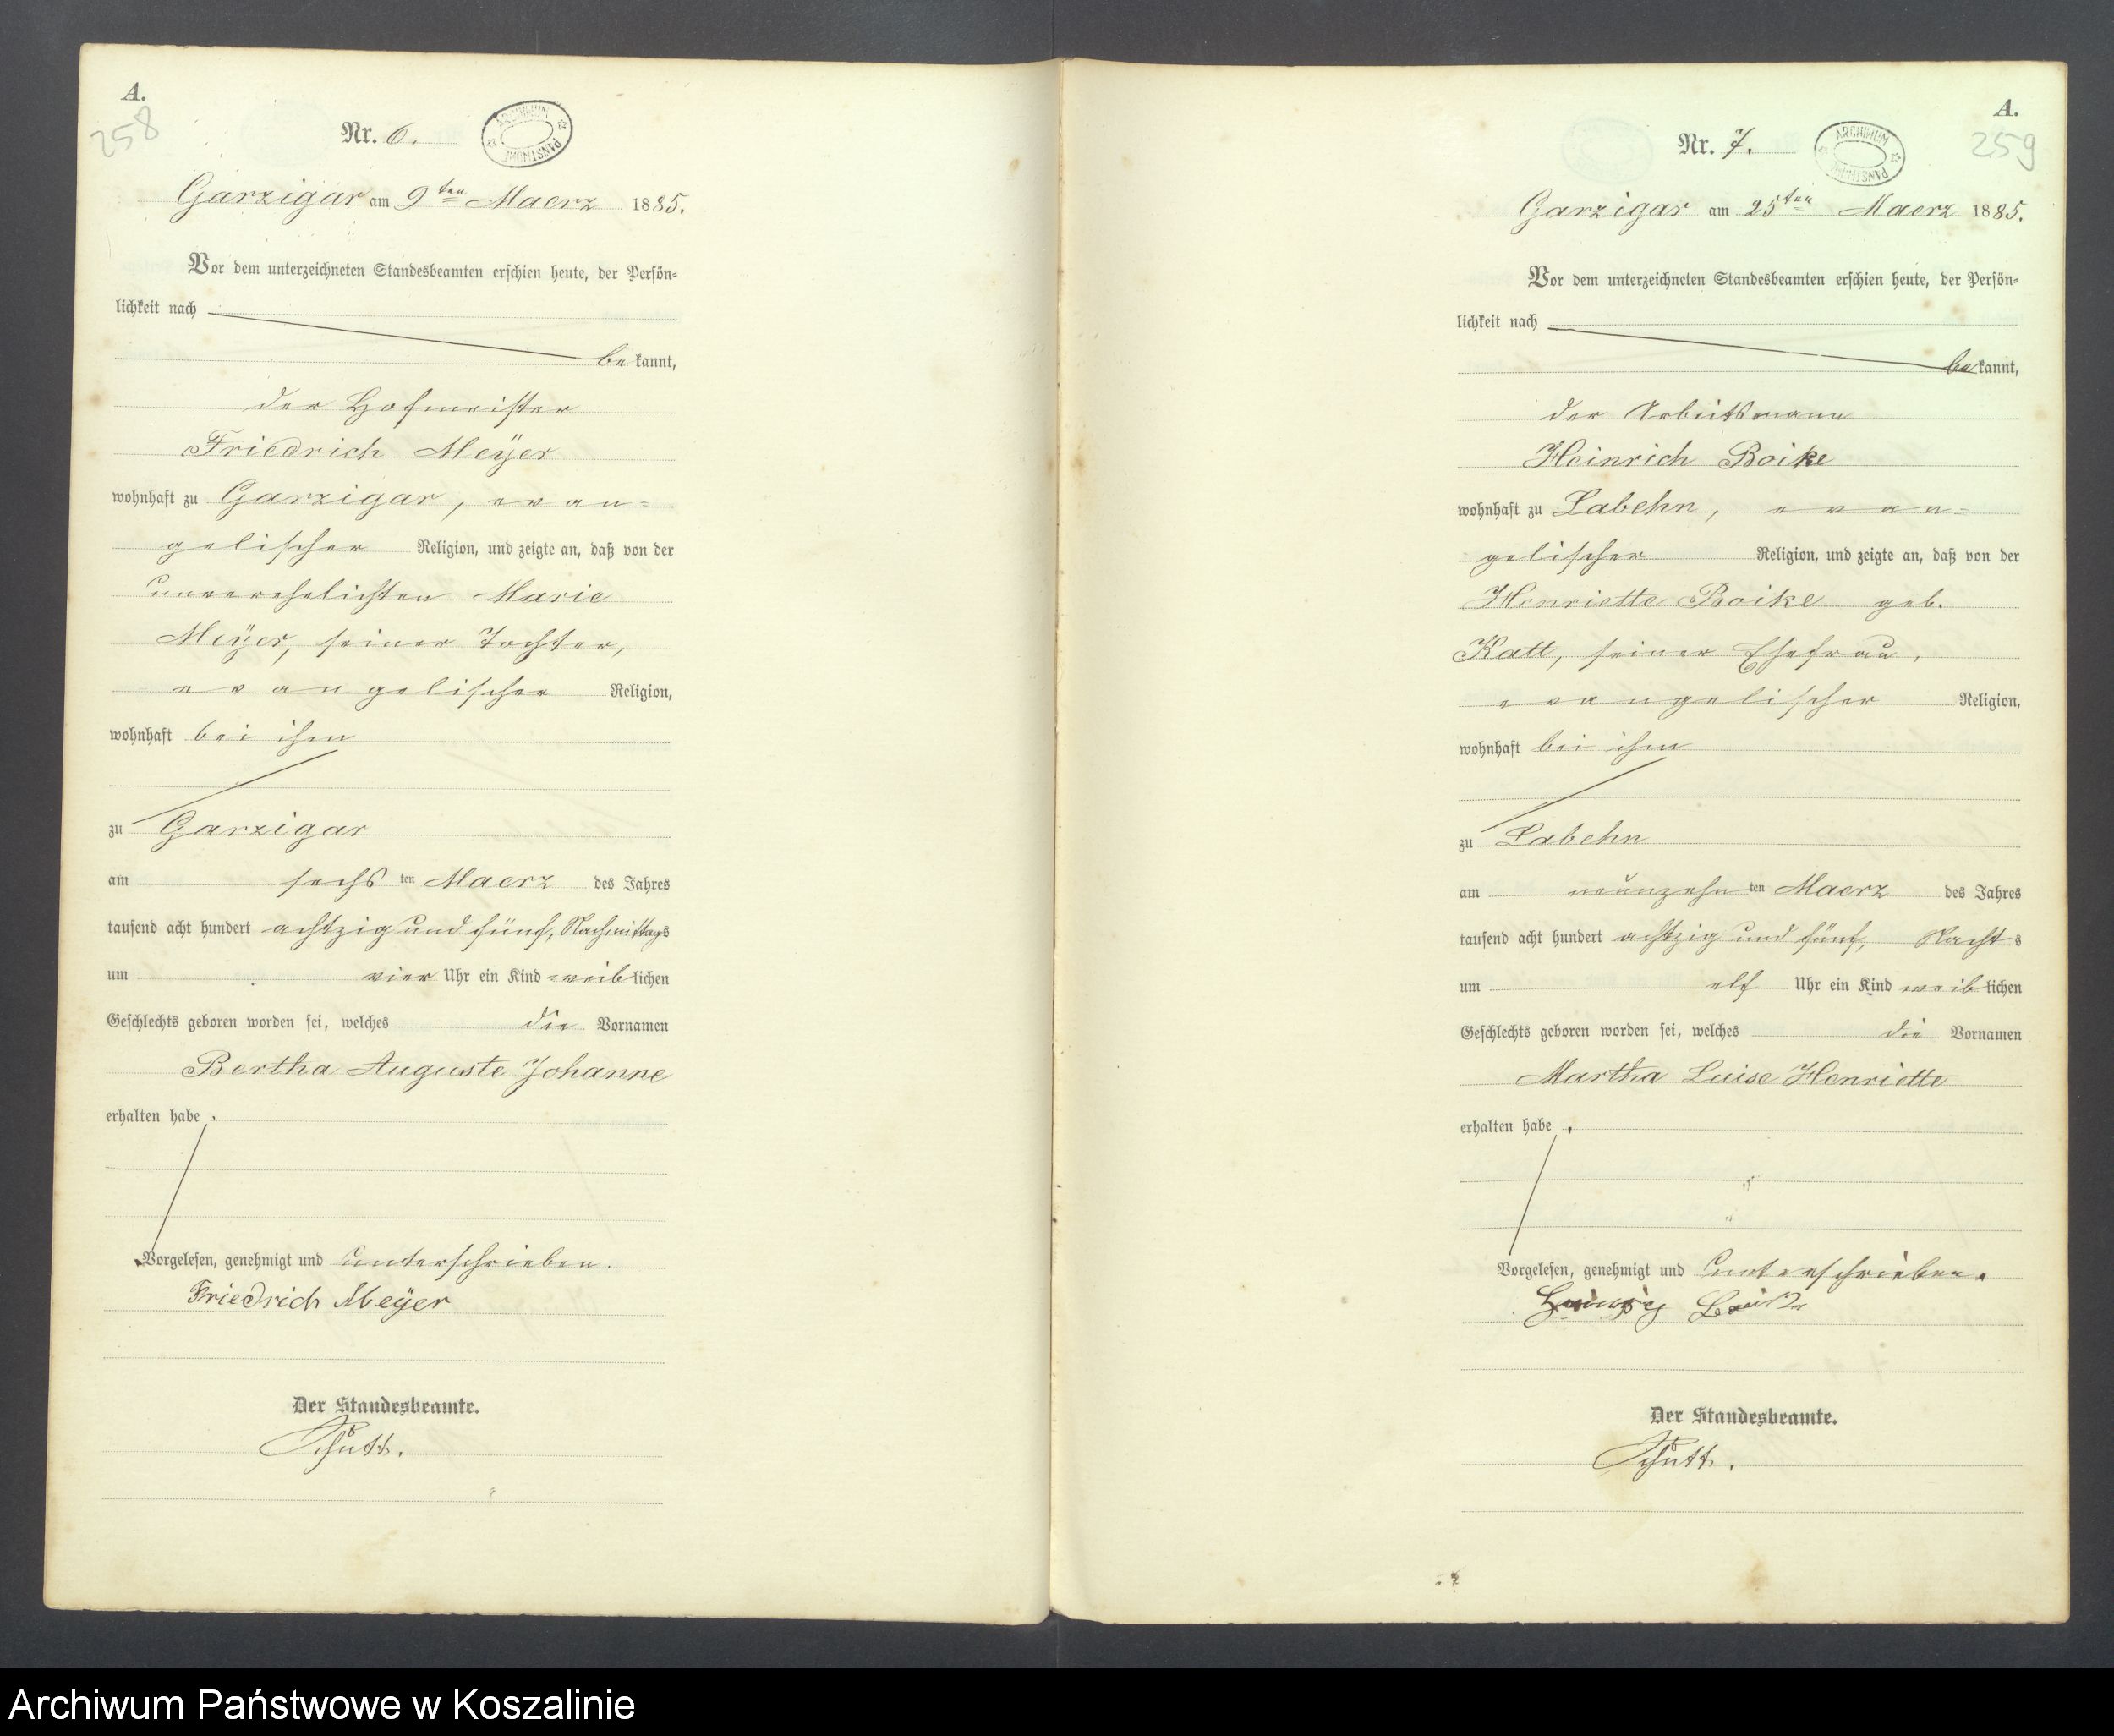 A.
258
Nr. 6.
ARCHIWUM PAŃSTWOWE
Garzigar am 9ten Maerz 1885.
Vor dem unterzeichneten Standesbeamten erschien heute, der Persön-
lichkeit nach
be kannt,
der Hofmeister
Friedrich Meÿer
wohnhaft zu Garzigar, evan-
gelischer Religion, und zeigte an, daß von der
unverehelichten Marie
Meÿer, seiner Tochter,
evangelischer Religion,
wohnhaft bei ihm
zu Garzigar
am sechs ten Maerz des Jahres
tausend acht hundert achtzig und fünf, Nachmittags
um vier Uhr ein Kind weiblichen
Geschlechts geboren worden sei, welches die Vornamen
Bertha Auguste Johanne
erhalten habe.
Vorgelesen, genehmigt und unterschrieben.
Friedrich Meÿer
Der Standesbeamte.
Schütt.
A.
259
Nr. 7.
ARCHIWUM PAŃSTWOWE
Garzigar am 25ten Maerz 1885.
Vor dem unterzeichneten Standesbeamten erschien heute, der Persön-
lichkeit nach
be kannt,
der Arbeitsmann
Heinrich Boike
wohnhaft zu Labehn, evan-
gelischer Religion, und zeigte an, daß von der
Henriette Boike geb.
Katt, seiner Ehefrau,
evangelischer Religion,
wohnhaft bei ihm
zu Labehn
am neunzehn ten Maerz des Jahres
tausend acht hundert achtzig und fünf, Nachts
um elf Uhr ein Kind weiblichen
Geschlechts geboren worden sei, welches die Vornamen
Martha Luise Henriette
erhalten habe.
Vorgelesen, genehmigt und unterschrieben.
Der Standesbeamte.
Schütt.
Archiwum Państwowe w Koszalinie